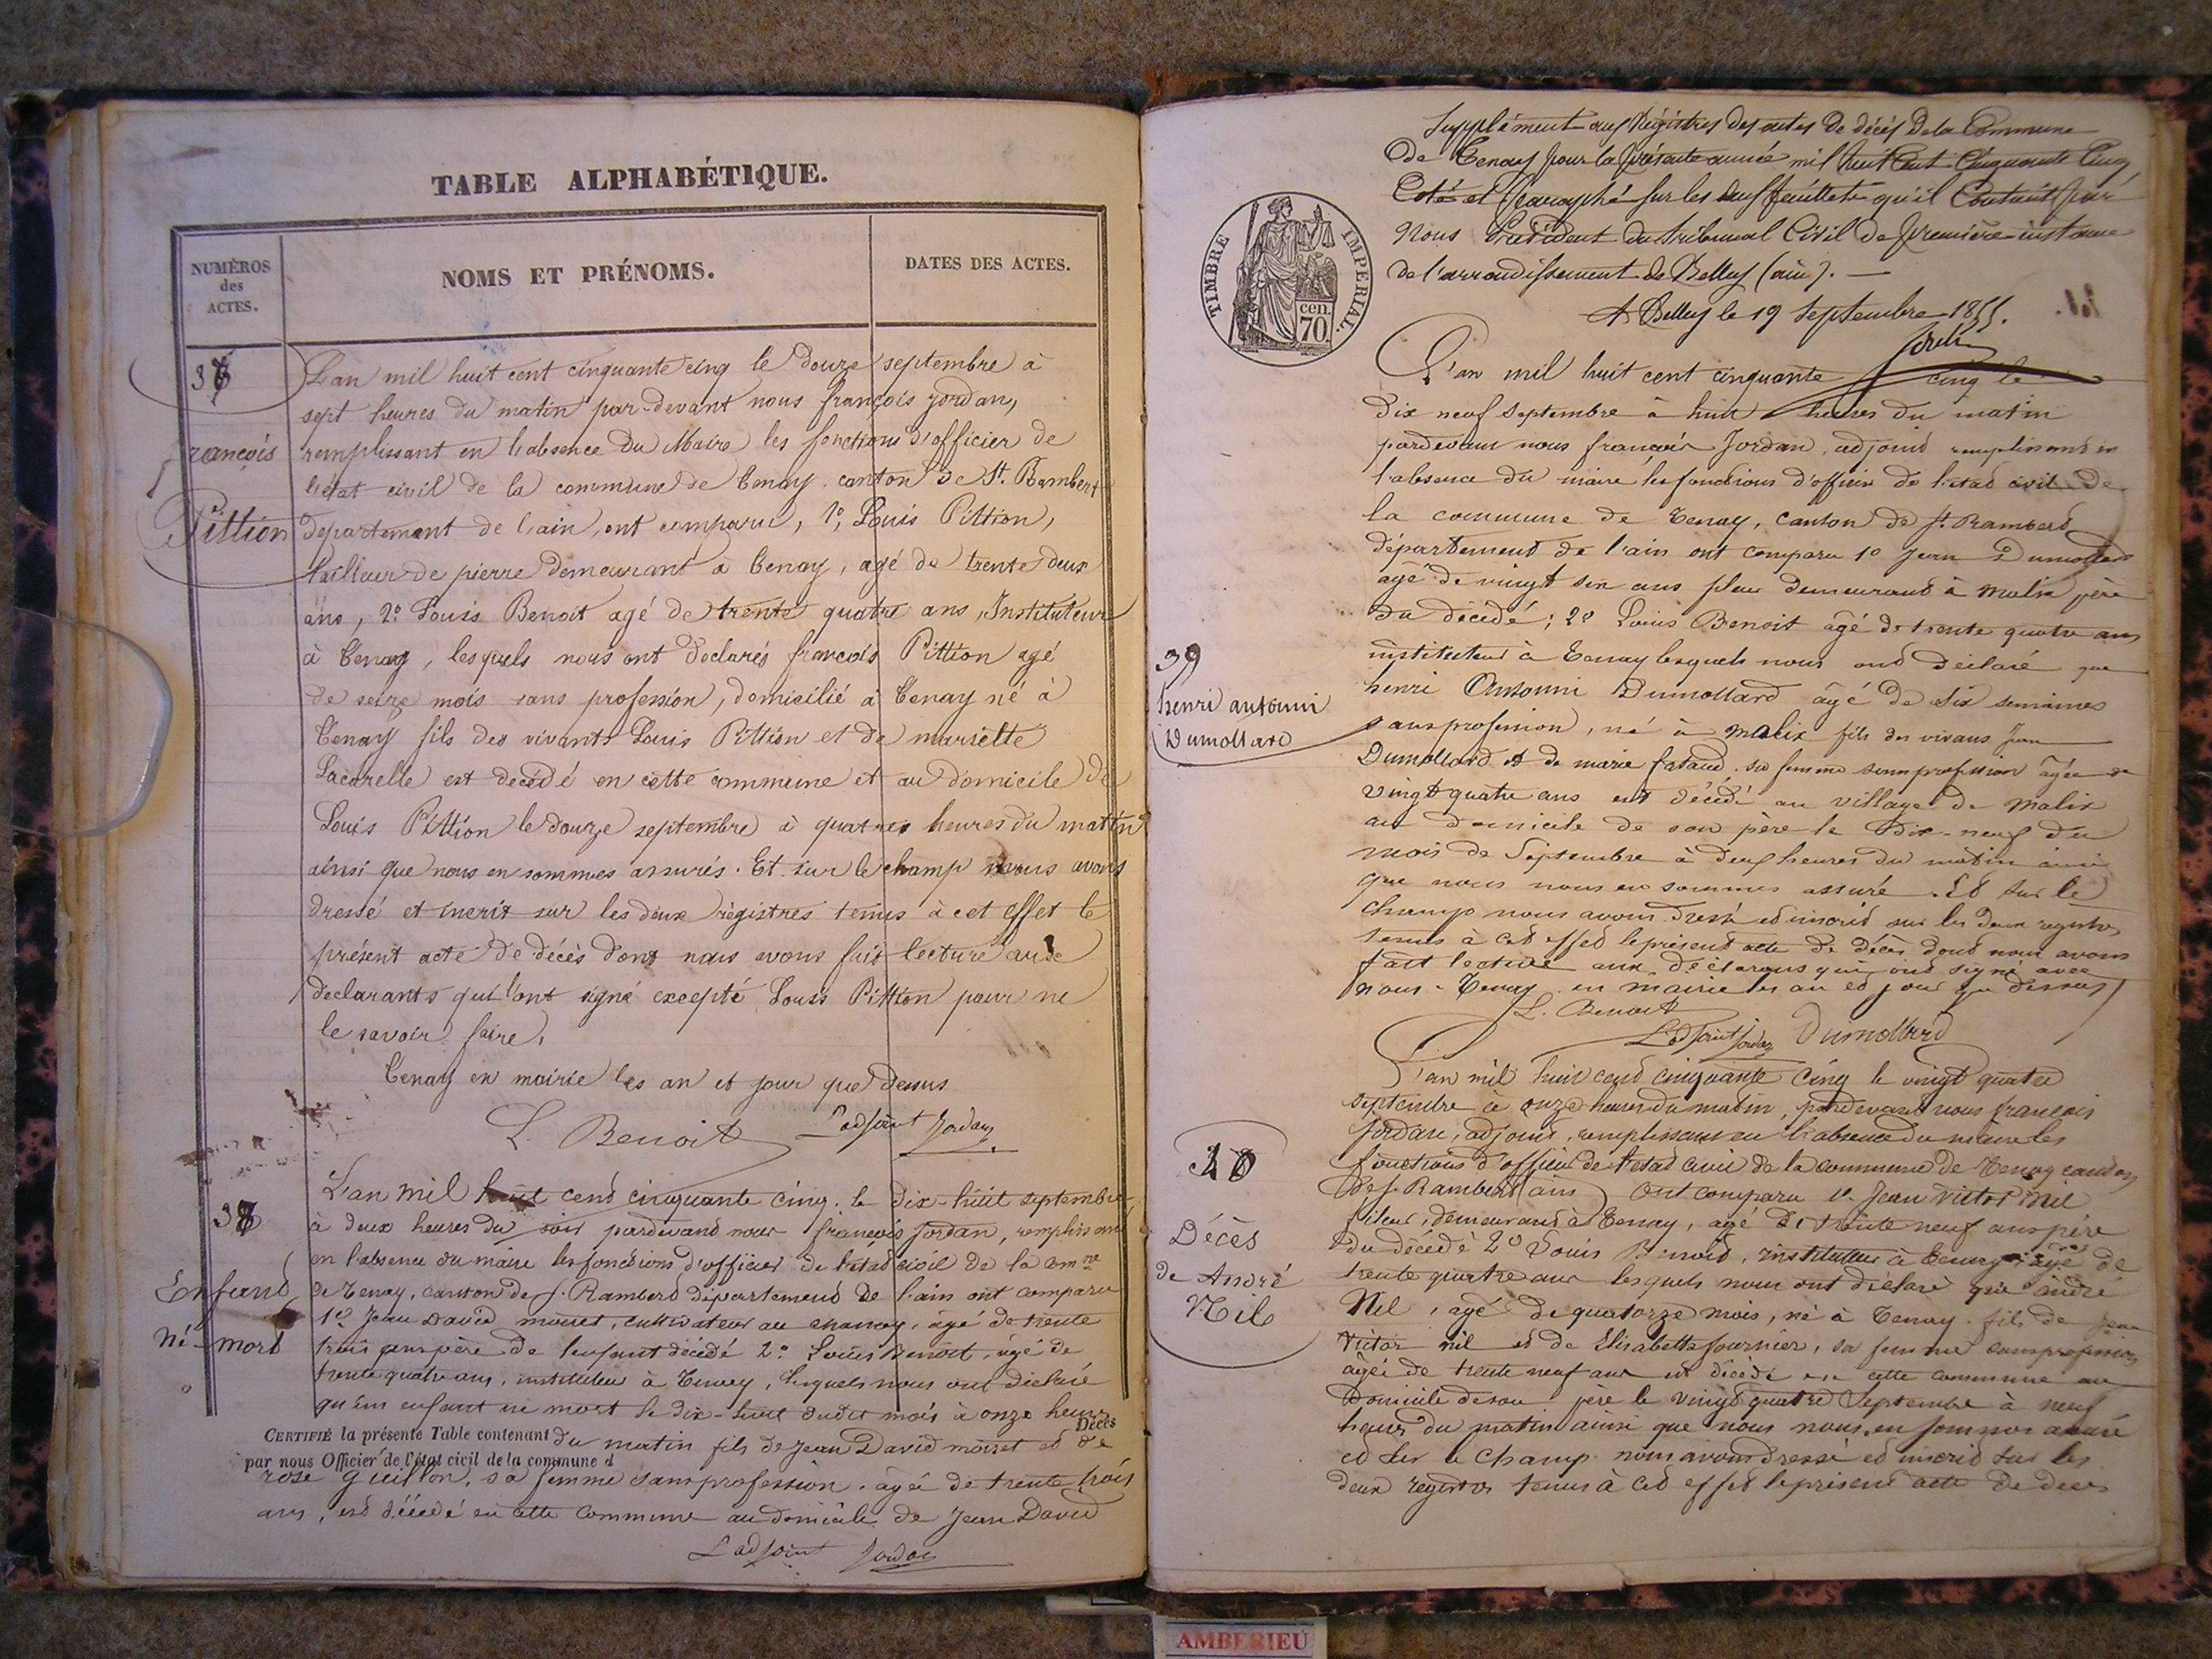 TABLE ALPHABÉTIQUE.
NUMÉROS
des
ACTES.
NOMS ET PRÉNOMS.
DATES DES ACTES.
37
françois
Pittion
L'an mil huit cent cinquante cinq le douze septembre à
sept heures du matin par-devant nous françois jordan,
remplissant en l'absence du Maire les fonctions d'officier de
l'état civil de la commune de Tenay canton de St. Rambert
departement de l'ain, ont comparu, 1o, Louis Pittion,
tailleur de pierre demeurant à Tenay, agé de trente deux
ans, 2o Louis Benoit agé de trente quatre ans, Instituteur
à Tenay, lesquels nous ont declarés francois Pittion agé
de seize mois sans profession, domicilié à Tenay né à
Tenay fils des vivants Louis Pittion et de mariette
Lacorelle est decédé en cette commune et au domicile de
Louis Pittion le douze septembre à quatres heures du matin
ainsi que nous en sommes assurés. Et sur le champ nous avons
dressé et inscrit sur les deux régistres tenus à cet effet le
présent acte de décès dont nous avons fait lecture au
declarants qui l'ont signé excepté Louis Pittion pour ne
le savoir faire,
Tenay en mairie les an et jour que dessus
L. Benoit L'adjoint Jordan
38
Enfant
né-mort
L'an mil huit cent cinquante cinq, le dix-huit septembre
à deux heures du soir pardevant nous françois Jordan, remplissant
en l'absence du maire les fonctions d'officier de l'état civil de la comne
de Tenay, canton de St Rambert département de l'ain ont comparu
1o Jean David moiret, cultivateur au chanay, âgé de trente
trois ans père de l'enfant décédé 2o Louis Benoit, âgé de
trente quatre ans, instituteur à Tenay, lesquels nous ont déclaré
qu'un enfant né mort le dix-huit dudit mois à onze heures
CERTIFIÉ la présente Table contenant Décès
du matin fils de Jean David moiret et de
par nous Officier de l'état civil de la commune d
rose guillon, sa femme sans profession, âgée de trente trois
ans, est décédé en cette commune au domicile de Jean David
L'adjoint Jordan
Supplément aux Régistres des actes de décès de la Commune
de Tenay pour la présente année mil huit Cent Cinquante Cinq
Coté et Paraphé sur les deux feuillets qu'il Contient par
Nous Président du tribunal Civil de première instance
de l'arrondissement de Belley (ain).
A Belley le 19 Septembre 1855.
TIMBRE IMPERIAL.
cen.
70.
39
henri antouni
Dumollard
L'an mil huit cent cinquante cinq le
dix neuf Septembre à huit heures du matin
pardevant nous françois Jordan, adjoint remplissant en
l'absence du maire les fonctions d'officier de l'état civil de
la commune de Tenay, canton de St. Rambert
département de l'ain ont comparu 1o Jean Dumollard
âgé de vingt six ans demeurant à Malix père
du décédé; 2o Louis Benoit âgé de trente quatre ans
instituteur à Tenay lesquels nous ont déclaré que
henri Antouni Dumollard âgé de six semaines
sans profession, né à Malix fils des vivans Jean
Dumollard et de marie sa femme sans profession âgée de
vingt quatre ans est décédé au village de Malix
au domicile de son père le dix-neuf du
mois de Septembre à deux heures du matin ainsi
que nous nous en sommes assuré. Et sur le
champ nous avons dressé et inscrit sur les deux registres
tenus à cet effet le présent acte de décès dont nous avons
fait lecture aux déclarans qui ont signé avec
nous - Tenay en mairie les an et jour que dessus
L. Benoit
L'adjoint Jordan Dumollard
40
Décès
de André
Nil
L'an mil huit cent cinquante cinq le vingt quatre
septembre à onze heures du matin, pardevant nous françois
Jordan, adjoint, remplissant en l'absence du maire les
fonctions d'officier de l'état civil de la commune de Tenay canton
de St. Rambert (ain) ont comparu 1o Jean Victor Nil
fileur, demeurant à Tenay, agé de trente neuf ans père
du décédé 2o Louis Benoit, instituteur à Tenay âgé de
trente quatre ans lesquels nous ont déclaré que andré
Nil, agé de quatorze mois, né à Tenay, fils de Jean
Victor nil et de Elisabette fournier, sa femme sans profession
âgée de trente neuf ans est décédé en cette commune au
domicile de son père le vingt quatre Septembre à neuf
heures du matin ainsi que nous nous en sommes assuré
et sur le champ nous avons dressé et inscrit sur les
deux registres tenus à cet effet le présent acte de décès
AMBERIEU